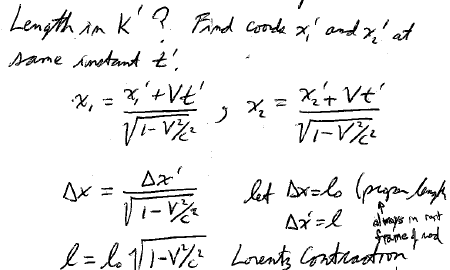 Length in K' ? Find coords x₁' and x₂' at
same instant t'.
x₁ = (x₁' + Vt') / √(1-V²/c²) , x₂ = (x₂' + Vt') / √(1-V²/c²)
Δx = Δx' / √(1-V²/c²) let Δx = l₀ (proper length
Δx' = l always in rest
frame of rod
l = l₀ √(1-V²/c²) Lorentz Contraction